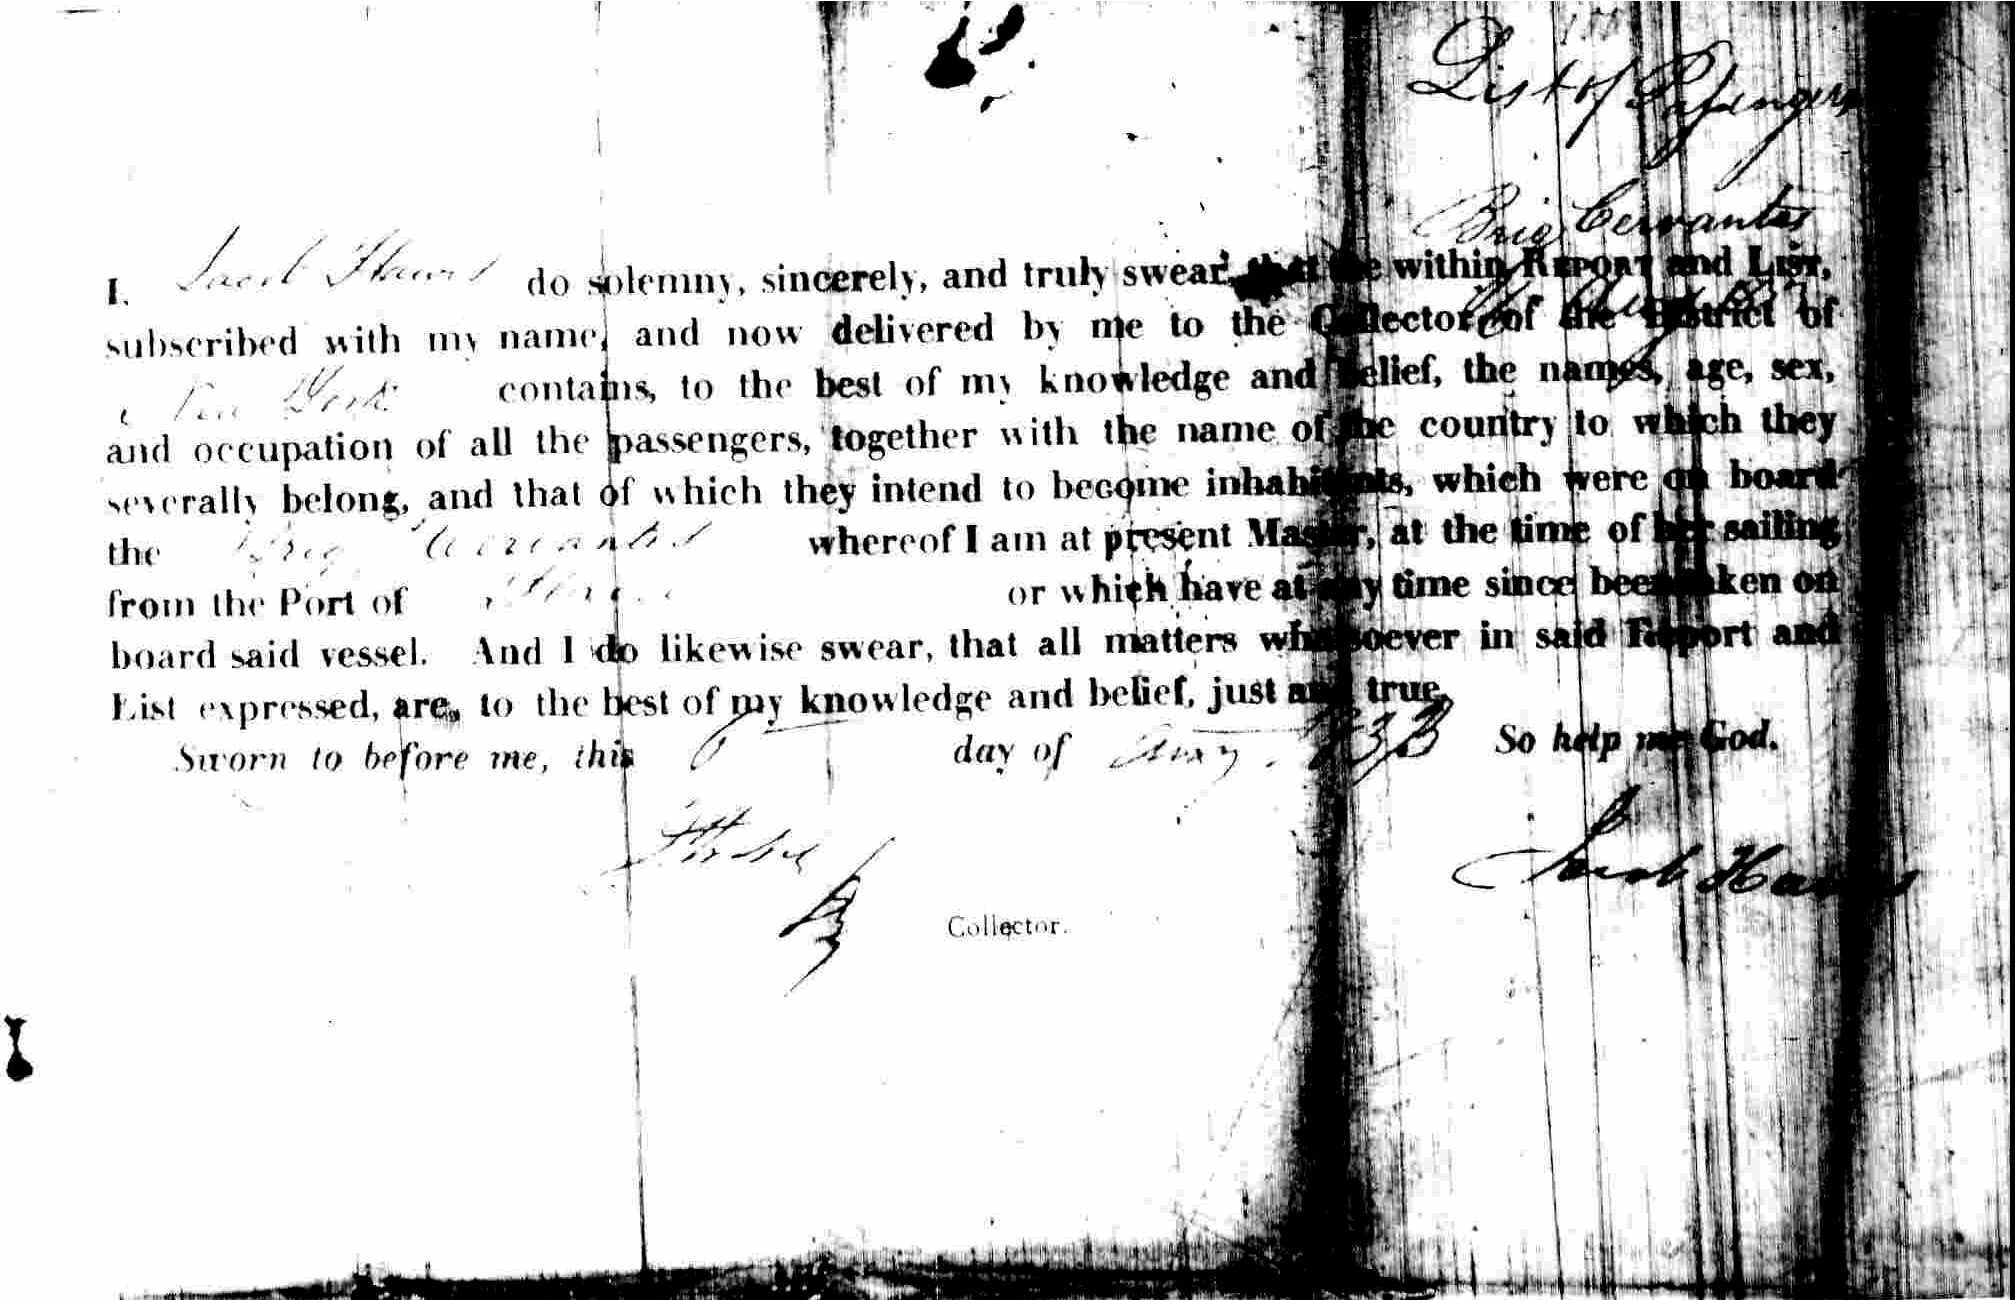 List of Passengers
Brig Cervantes
I, Jacob Hawes do solemny, sincerely, and truly swear, that the within Report and List,
subscribed with my name, and now delivered by me to the Collector of the District of
New York contains, to the best of my knowledge and belief, the names, age, sex,
and occupation of all the passengers, together with the name of the country to which they
severally belong, and that of which they intend to become inhabitants, which were on board
the Brig Cervantes whereof I am at present Master, at the time of her sailing
from the Port of or which have at any time since been taken on
board said vessel. And I do likewise swear, that all matters whatsoever in said Report and
List expressed, are, to the best of my knowledge and belief, just and true.
Sworn to before me, this 6 day of Aug. 1833 So help me God.
Jacob Hawes
Collector.